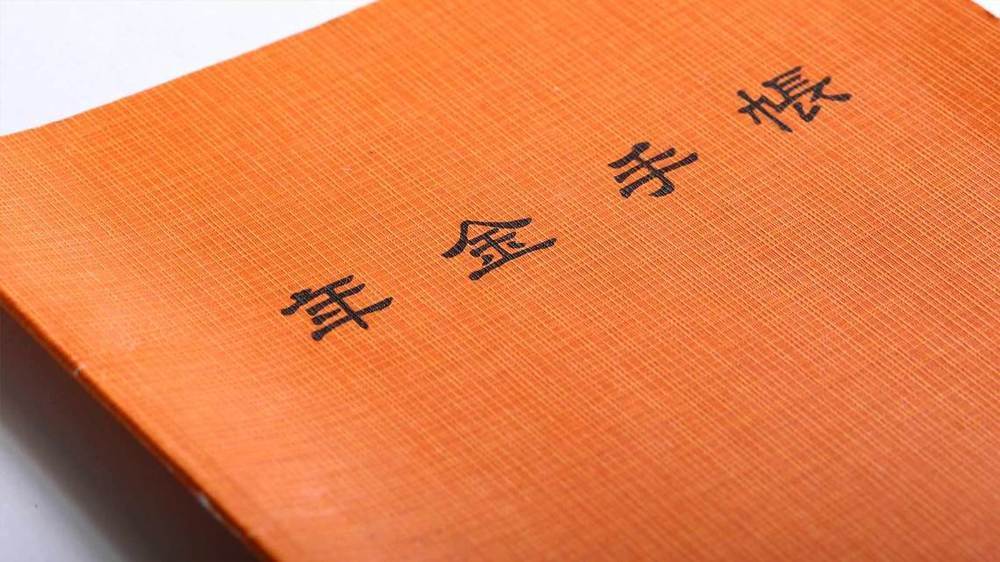 年金手帳